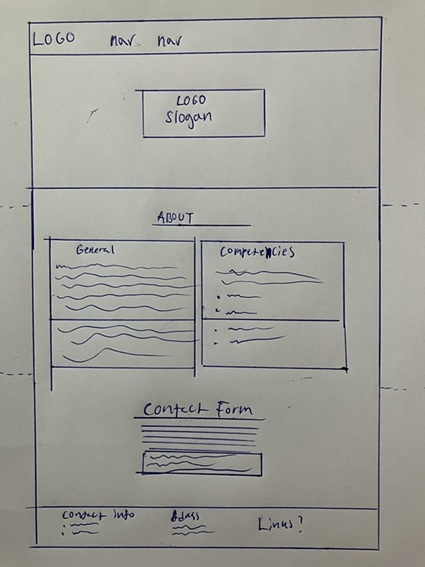 LOGO nav nav
LOGO
Slogan
ABOUT
General
Competencies
Contact Form
Contact info Adass Links?